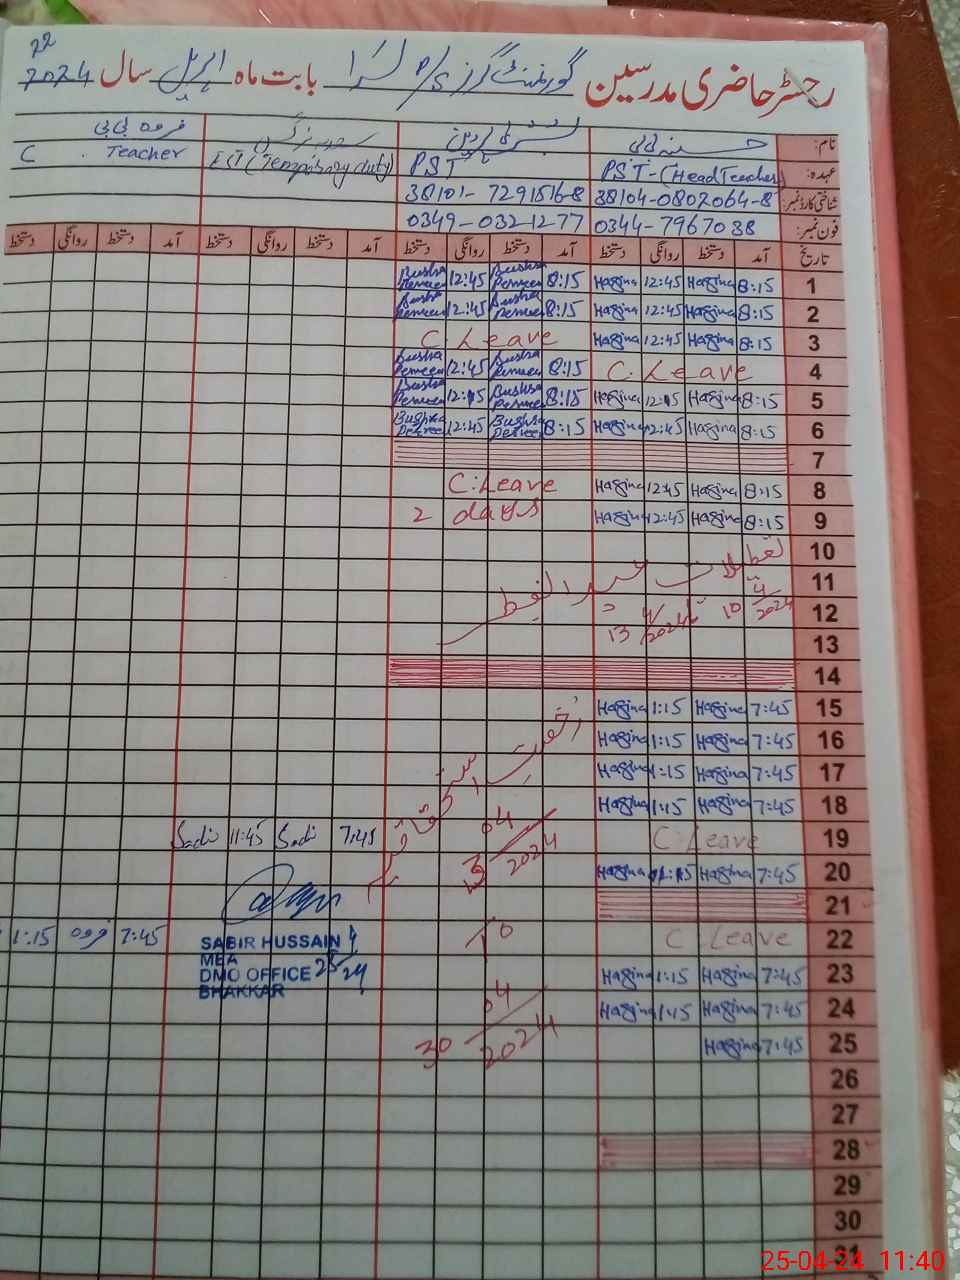 رجسٹر حاضری مدرسین گورنمنٹ گرلز P/S لسڑا بابت ماہ اپریل سال 2024
22
نام: حسینہ بی بی بشریٰ پروین فروہ بی بی
عہدہ: PST-(Head Teacher) PST EST (Temporary duty) C . Teacher
شناختی کارڈ نمبر: 38104-0802064-8 38101-7291516-8
فون نمبر: 0344-7967038 0349-0321277
تاریخ آمد دستخط روانگی دستخط آمد دستخط روانگی دستخط آمد دستخط روانگی دستخط آمد دستخط روانگی دستخط
1 8:15 Hassina 12:45 Hassina 8:15 Bushra Perveen 12:45 Bushra Perveen
2 8:15 Hassina 12:45 Hassina 8:15 Bushra Perveen 12:45 Bushra Perveen
3 8:15 Hassina 12:45 Hassina C.Leave
4 C.Leave 8:15 Bushra Perveen 12:45 Bushra Perveen
5 8:15 Hassina 12:15 Hassina 8:15 Bushra Perveen 12:15 Bushra Perveen
6 8:15 Hassina 12:45 Hassina 8:15 Bushra Perveen 12:45 Bushra Perveen
7
8 8:15 Hassina 12:45 Hassina C:Leave
9 8:15 Hassina 12:45 Hassina 2 days
10 تعطیلات عید الفطر
11 10 4/2024 تا
12 13 4/2024
13
14
15 7:45 Hassina 1:15 Hassina رخصت استحقاقیہ
16 7:45 Hassina 1:15 Hassina
17 7:45 Hassina 1:15 Hassina
18 7:45 Hassina 1:15 Hassina 04
19 C.Leave 2024 7:45 Sadi 11:45 Sadi
20 7:45 Hassina 01:15 Hassina
21
22 C.Leave To 7:45 فروہ 1:15
SABIR HUSSAIN
MEA
DMO OFFICE 25/4/24
BHAKKAR
23 7:45 Hassina 1:15 Hassina
24 7:45 Hassina 1:15 Hassina 04
25 7:45 Hassina 30 2024
26
27
28
29
30
31
25-04-24 11:40